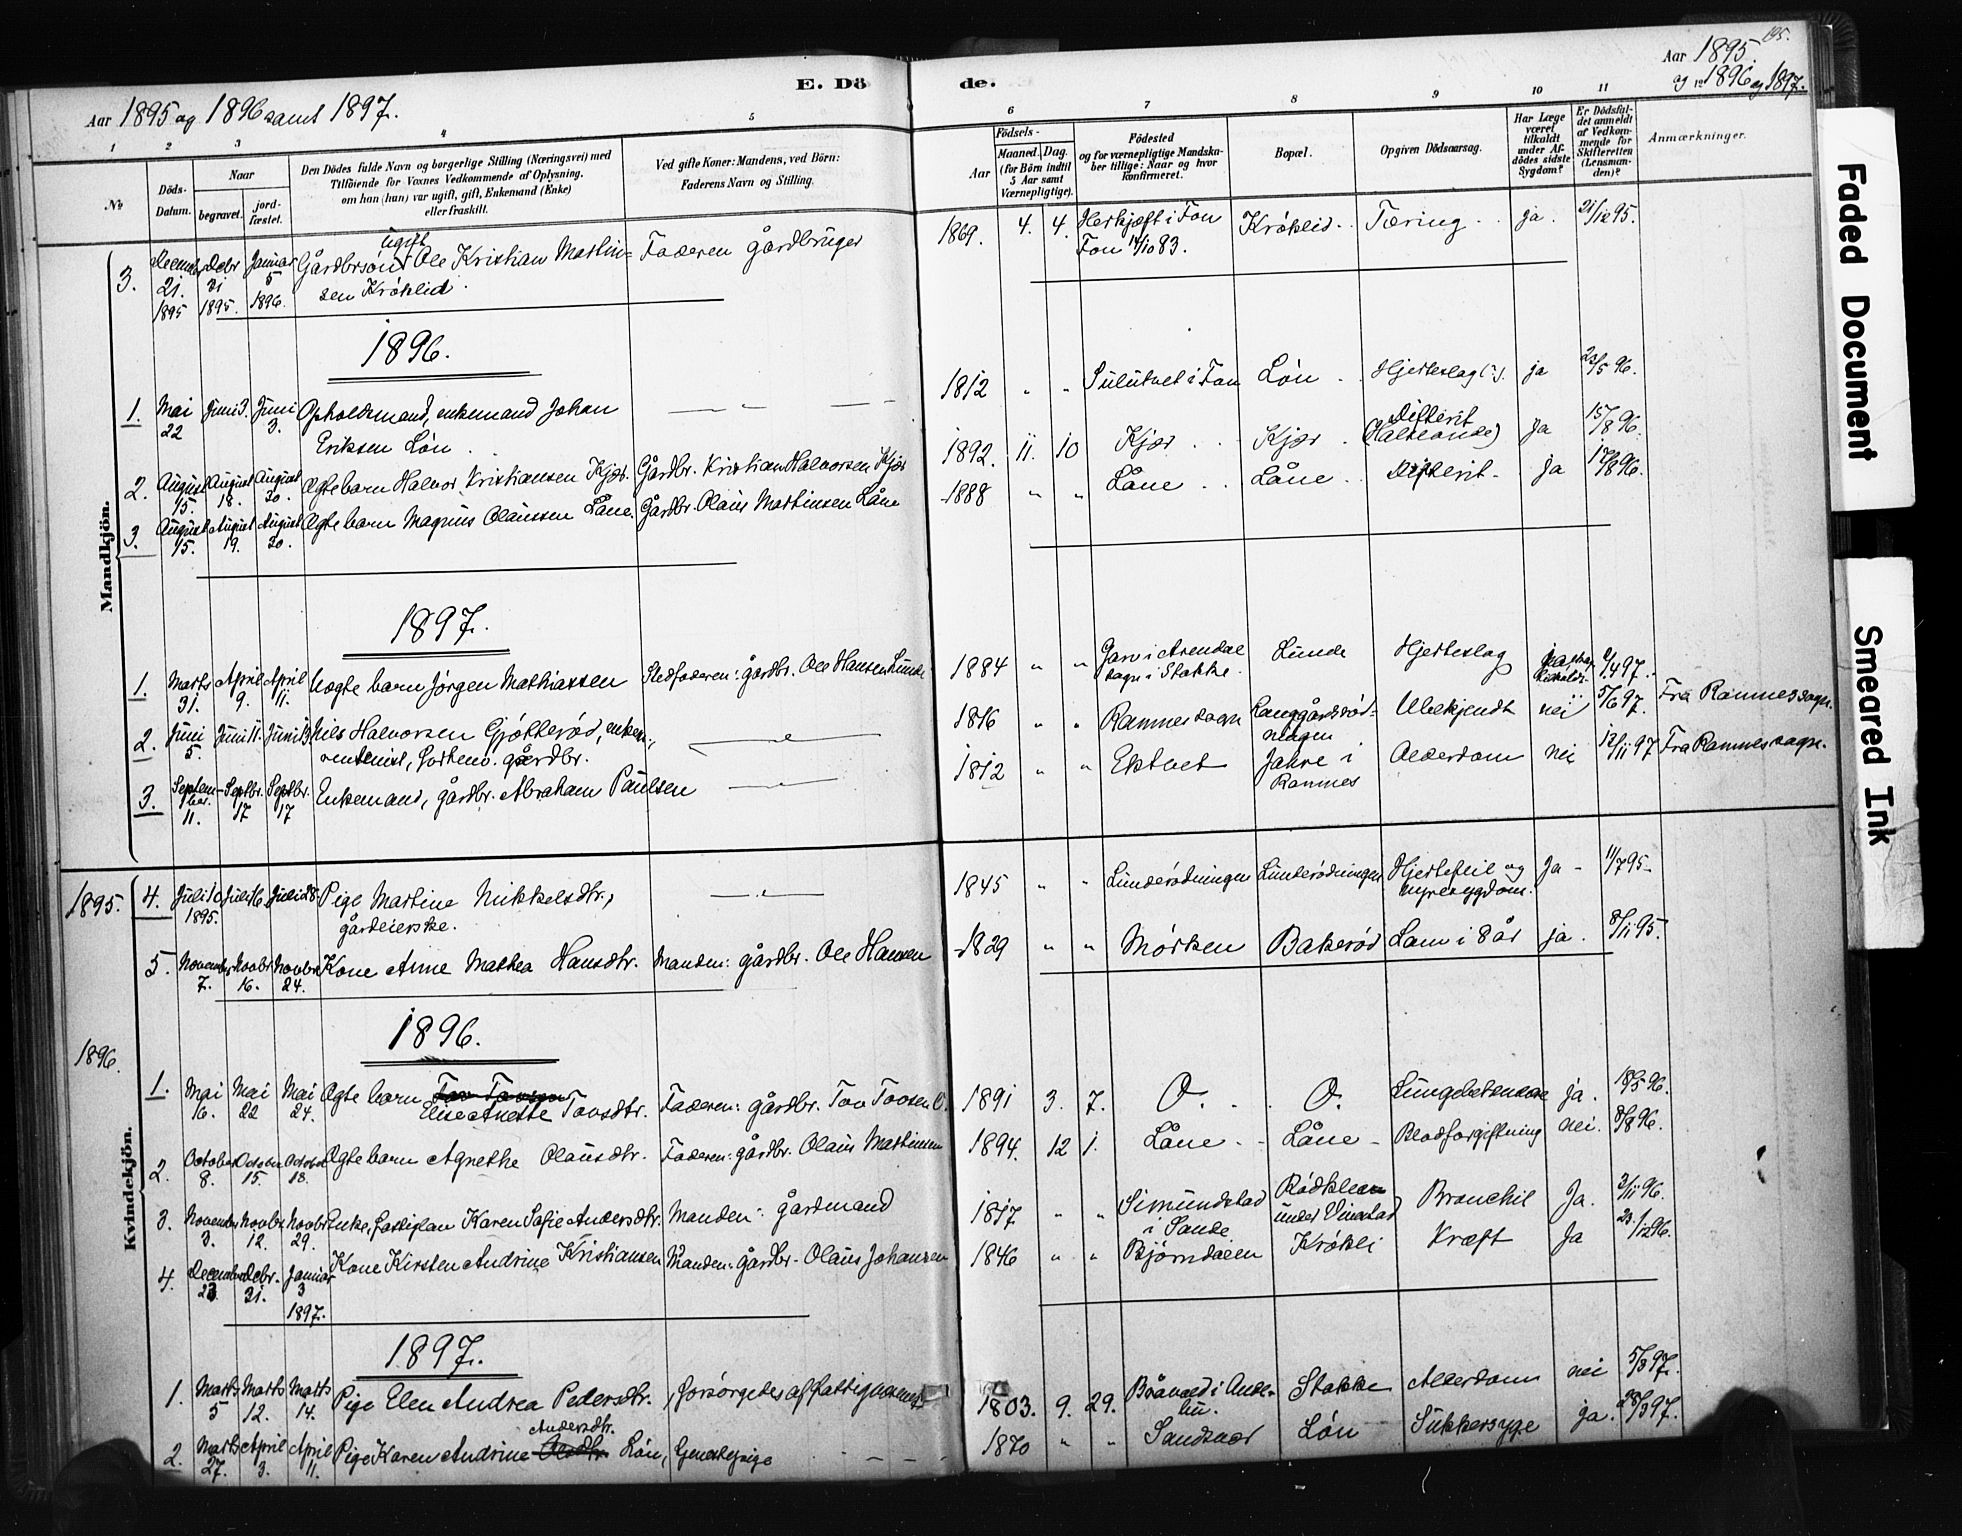 195.
Aar 1895 og 1896 samt 1897.
E. Dö
de.
Aar 1895.
og 1896 og 1897.
1 2 3 4 5
6 7 8 9 10 11
No
Döds-Datum.
Naar
begravet.
jord-fæstet.
Den Dödes fulde Navn og borgerlige Stilling (Næringsvei) med
Tilföiende for Voxnes Vedkommende af Oplysning,
om han (hun) var ugift, gift, Enkemand (Enke)
eller fraskilt.
Ved gifte Koner: Mandens, ved Börn:
Faderens Navn og Stilling.
Födsels-
Aar
Maaned. Dag.
(for Börn indtil
5 Aar samt
Værnepligtige).
Födested
og for værnepligtige Mandska-
ber tillige: Naar og hvor
konfirmeret.
Bopæl.
Opgiven Dödsaarsag.
Har Læge
været
tilkaldt
under Af-
dödes sidste
Sygdom?
Er Dödsfal-
det anmeldt
af Vedkom-
mende for
Skifteretten
(Lensman-
den)?
Anmærkninger.
Mandkjön.
3. December 21. 1895 Debr 31 1895. Januar 5 1896. ugift Gårdbrsøn Ole Kristian Martin-
sen Krøklid. Faderen gårdbruger
1869. 4. 4. Herkjæft i Fon
Fon 14/10 83. Krøklid. Tæring ja. 21/12 95.
1896.
1. Mai 22 Juni 3. Juni 3. Opholdsmand, enkemand Johan
Eriksen Løn.
1812 " " i Fon Løn Hjerteslag (?). ja 23/5 96.
2. August 15. August 18. August 30. Ægte barn Halvor Kristiansen Kjær. Gårdbr. Kristian Halvorsen Kjær
1892. 11. 10 Kjær Kjær Difterit
(Halseonde) ja 15/8 96.
3. August 15. August 19. August 30. Ægte barn Magnus Olaussen Låne. Gårdbr. Olaus Martinsen Låne
1888 " " Låne Låne Difterit ja 17/8 96.
1897.
1. Marts 31. April 9. April 11. Uægte barn Jørgen Mathiassen Stedfaderen: gårdbr. Ole Hansen Lunde
1884 " " i Arendal
sagn i Stokke. Lunde Hjerteslag ja 97.
2. Juni 5. Juni 11. Juni 13. Nils Halvorsen Gjøtterød, enkem.,
forhenv. gårdbr.
1816 " " Ramnes sogn Ubekjendt nei 5/6 97. Fra Ramnes sogn.
3. Septem-ber. 11. Septbr. 17 Septbr. 17 Enkemand, gårdbr. Abraham Paulsen
1812 " " Ektvet Jahre i
Ramnes Alderdom nei 12/11 97 Fra Ramnes sogn.
Kvindekjön.
1895. 4. Juli 10 1895. Juli 16. Juli 28. Pige Martine Nikkelsdtr,
gårdeierske.
1845 " " Lunderødningen Lunderødningen Hjertefeil og
nyresygdom. Ja 11/7 95
5. November 7. Novbr 16. Novbr 24. Kone Anne Mathea Hansdtr. Manden: gårdbr. Ole Hansen
1829 " " Mørken Bakerød Lam i 8 år ja. 8/11 95.
1896.
1896.
1. Mai 16. Mai 22 Mai 24. Ægte barn Tov Tovsen
Elise Anette Tovsdtr. Faderen: gårdbr. Tov Tovsen O.
1891 3. 7. O. O. Lungebetændelse ja. 18/5 96.
2. October 8. October 15. October 18. Ægte barn Agnethe Olausdtr. Faderen: gårdbr. Olaus Martinsen
1894. 12 1. Låne Låne Blodforgiftning nei. 8/8 96.
3. November 3. Novbr 12. Novbr 29. Enke, Karen Sofie Andersdtr. Manden: gårdmand
1817 " " Simundstad
i Sande under Vinestad Bronchit Ja. 3/11 96.
4. December 23 Debr. 31. Januar 3 1897. Kone Kirsten Andrine Kristiansen Manden: gårdbr. Olaus Johansen
1846 " " Bjørndalen Krøkli Kræft Ja 23./12 96.
1897.
1. Marts 5 Marts 12. Marts 14. Pige Elen Andrea Pedersdtr. , forsørgedes af fattigvæsenet
1803. 9. 29. i Andebu. Stokke Alderdom nei 5/3 97.
2. Marts 27. April 3. April 11. Pige Karen Andrine Andersdtr. Løn,
1870 " " Løn Sukkersyge ja. 28/3 97.
Faded Document
Smeared Ink